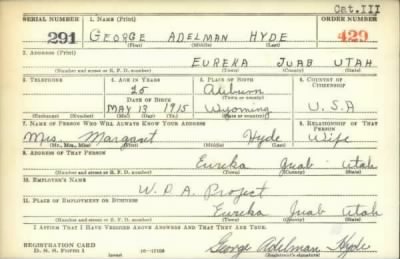 Cat. III
SERIAL NUMBER 1. NAME (Print) ORDER NUMBER
291 GEORGE ADELMAN HYDE 429
(First) (Middle) (Last)
2. ADDRESS (Print)
EUREKA JUAB UTAH
(Number and street or R. F. D. number) (Town) (County) (State)
3. TELEPHONE 4. AGE IN YEARS 5. PLACE OF BIRTH 6. COUNTRY OF CITIZENSHIP
25 Auburn
DATE OF BIRTH (Town or county)
MAY 13 1915 Wyoming U.S.A
(Exchange) (Number) (Mo.) (Day) (Yr.) (State or country)
7. NAME OF PERSON WHO WILL ALWAYS KNOW YOUR ADDRESS 8. RELATIONSHIP OF THAT PERSON
Mrs. Margaret Hyde Wife
(Mr., Mrs., Miss) (First) (Middle) (Last)
9. ADDRESS OF THAT PERSON
Eureka Juab Utah
(Number and street or R. F. D. number) (Town) (County) (State)
10. EMPLOYER'S NAME
W.P.A. Project
11. PLACE OF EMPLOYMENT OR BUSINESS
Eureka Juab Utah
(Number and street or R. F. D. number) (Town) (County) (State)
I AFFIRM THAT I HAVE VERIFIED ABOVE ANSWERS AND THAT THEY ARE TRUE.
REGISTRATION CARD
D. S. S. Form 1 (over) 16-17105 George Adelman Hyde
(Registrant's signature)